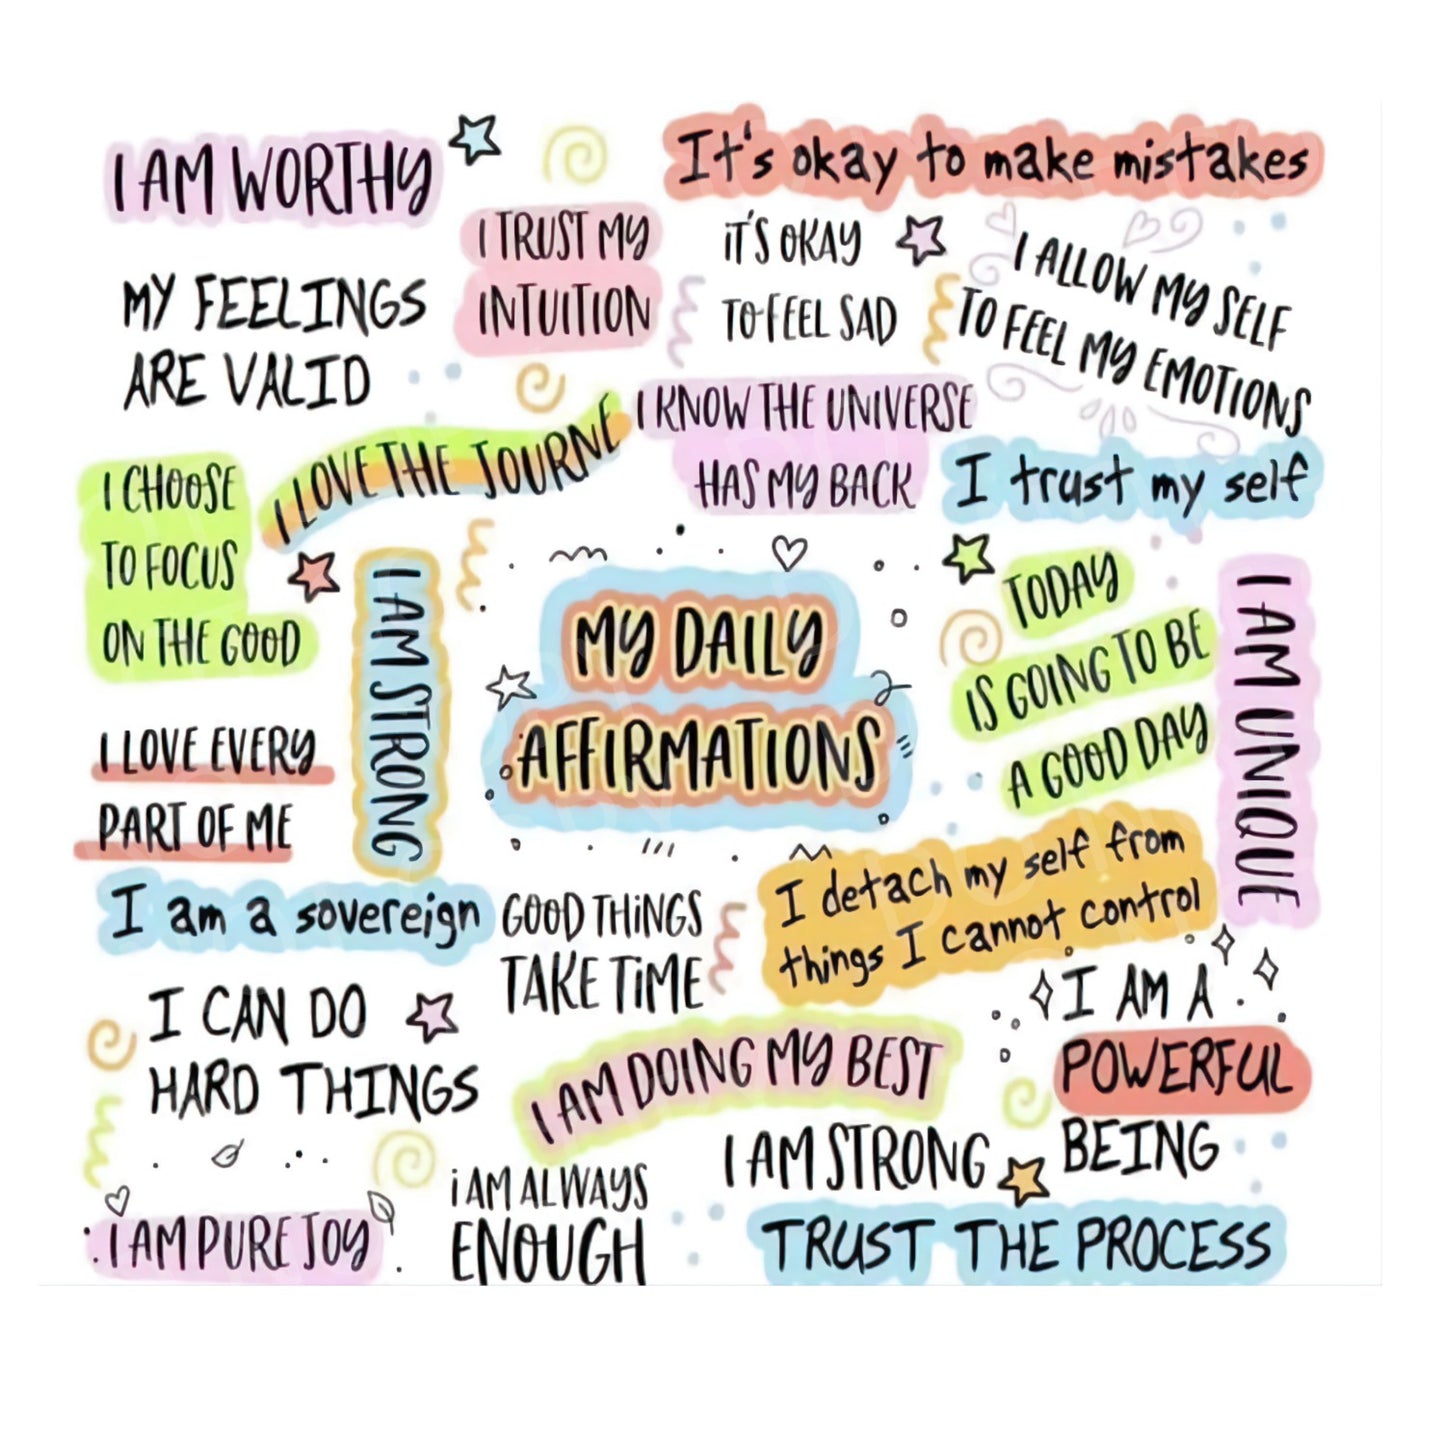 I AM WORTHY
It's okay to make mistakes
I TRUST MY
INTUITION
IT'S OKAY
TO FEEL SAD
I ALLOW MY SELF
TO FEEL MY EMOTIONS
MY FEELINGS
ARE VALID
I LOVE THE JOURNE
I KNOW THE UNIVERSE
HAS MY BACK
I trust my self
I CHOOSE
TO FOCUS
ON THE GOOD
I AM STRONG
MY DAILY
AFFIRMATIONS
TODAY
IS GOING TO BE
A GOOD DAY
I AM UNIQUE
I LOVE EVERY
PART OF ME
I am a sovereign
GOOD THINGS
TAKE TIME
I detach my self from
things I cannot control
I CAN DO
HARD THINGS
I AM DOING MY BEST
I AM A
POWERFUL
BEING
I AM STRONG
I AM PURE JOY
I AM ALWAYS
ENOUGH
TRUST THE PROCESS